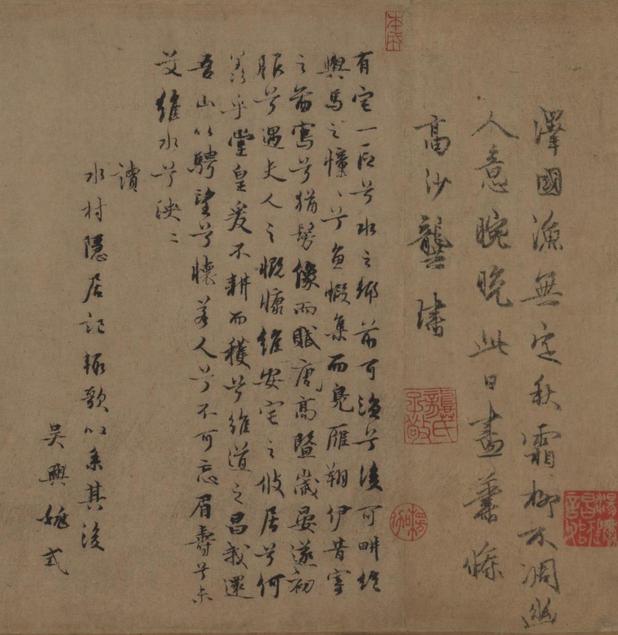 澤國漁無定秋霜柳不凋幽
人意晼晚此日畫蕭條
高沙龔璛
龔氏子敬
有宅一區兮水之鄉前可漁兮後可畊絶
輿馬之憧〻兮魚蝦集而鳧雁翔伊昔
之圖寫兮猶髣像而賦高暨歲晏遂初
服兮遇夫人之慨慷維安宅之攸居兮何
羨乎堂皇爰不耕而穫兮維道之昌我還
吾山以騁望兮懷若人兮不可忘眉壽兮未
艾維水兮泱〻
讀
水村隱居記輙歌以系其後
吳興姚式